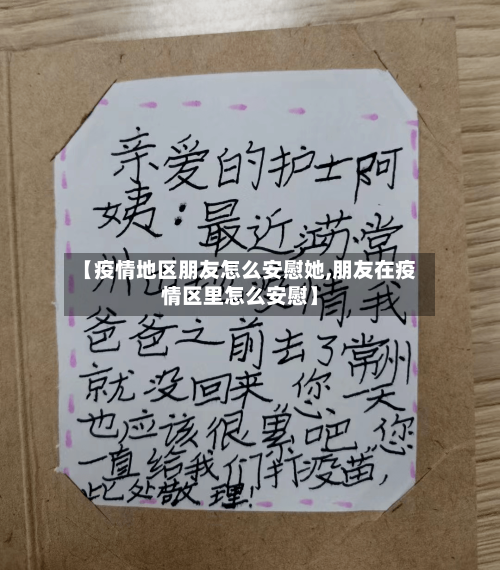 亲爱的护士阿
姨：最近江苏常
【疫情地区朋友怎么安慰她,朋友在疫
情区里怎么安慰】
州 情,我
爸爸之前去了常州
就没回来 您一天
也应该很累吧 您
一直给我们打疫苗,
此处敬理!